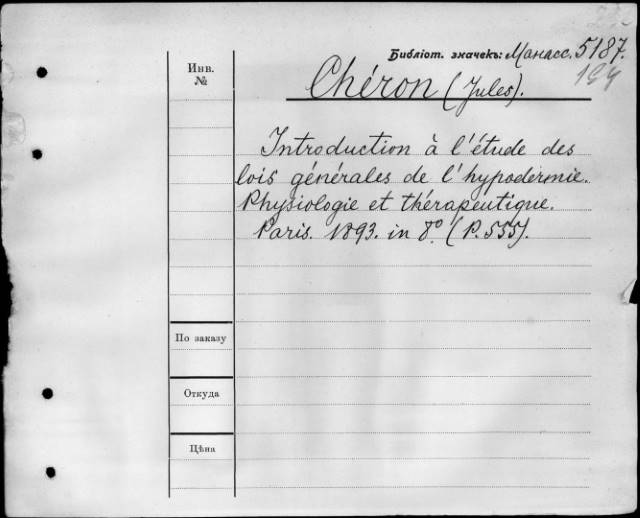 Библіот. значекъ: Манасс. 5187.
Инв.
№
Chéron (Jules).
Introduction à l'étude des
lois générales de l'hypodermie.
Physiologie et thérapeutique.
Paris. 1893. in 8º. (P. 555).
По заказу
Откуда
Цѣна